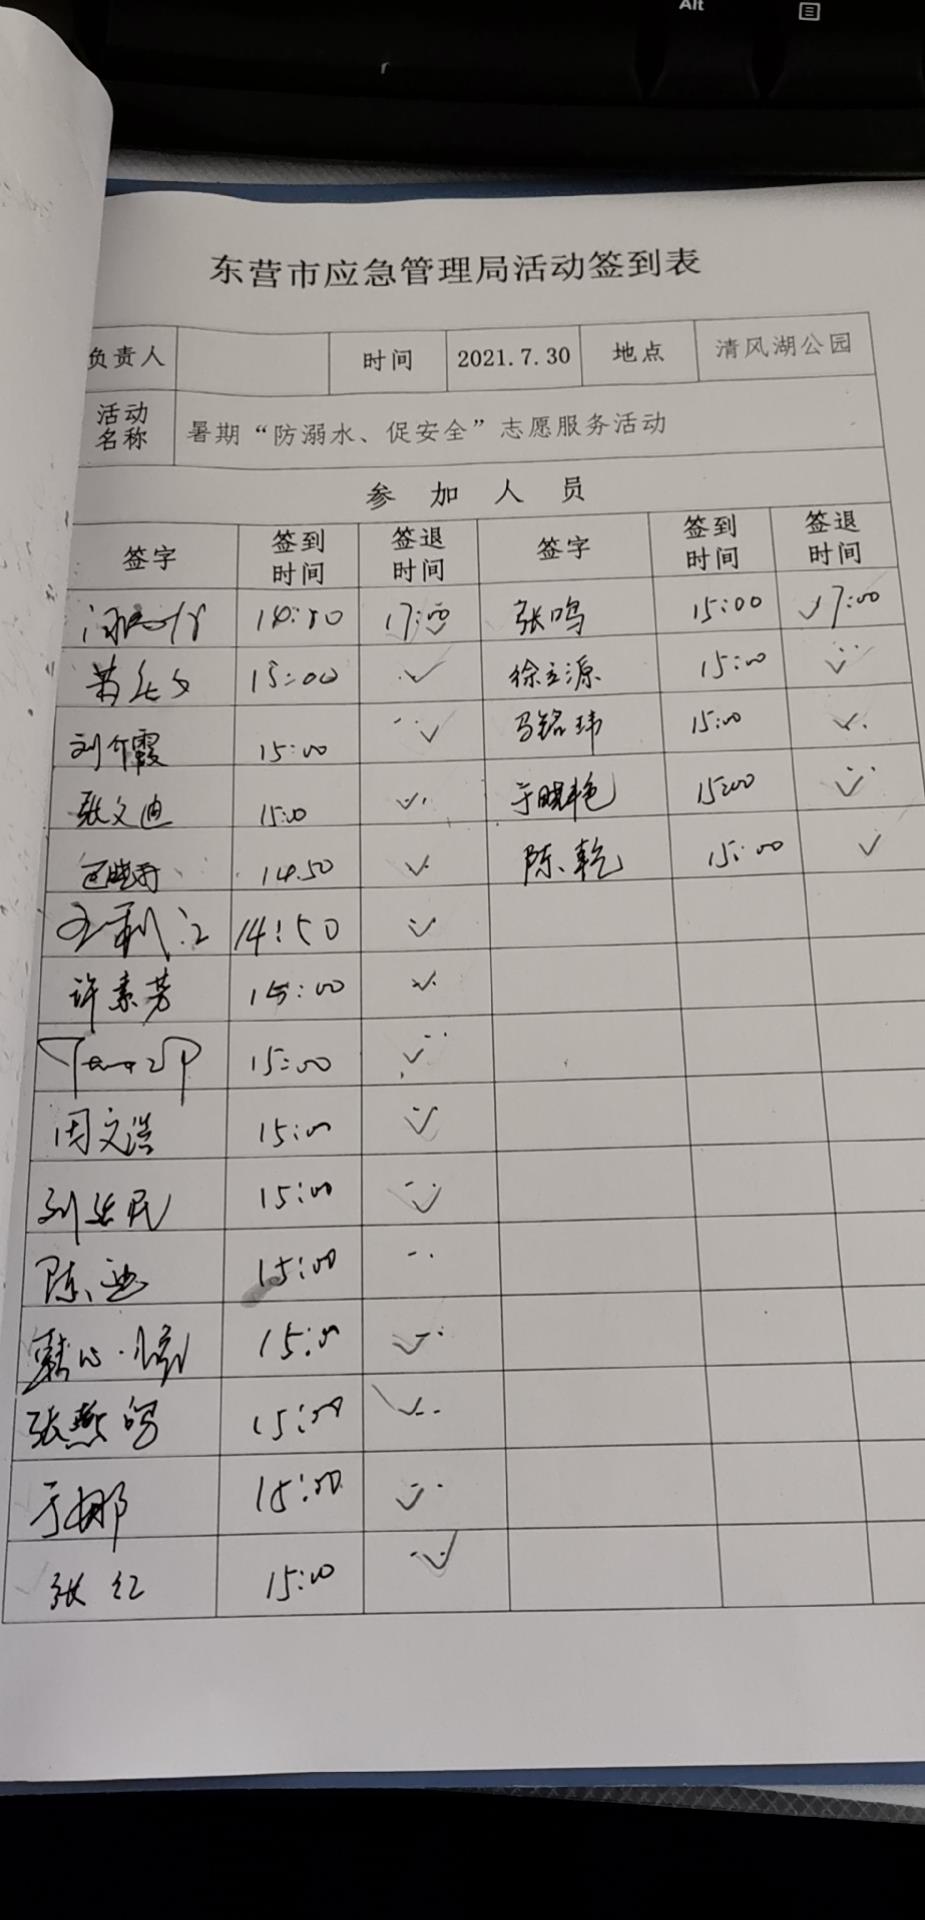 Alt
东营市应急管理局活动签到表
负责人 时间 2021.7.30 地点 清风湖公园
活动名称 暑期“防溺水、促安全”志愿服务活动
参加人员
签字 签到时间 签退时间 签字 签到时间 签退时间
14:50 17:00 张鸣 15:00 ✓17:00
15:00 ✓ 徐立源 15:00 ✓
刘介霞 15:00 ✓ 马铭玮 15:00 ✓
张文迪 15:00 ✓ 于晓艳 15:00 ✓
14:50 ✓ 陈乾 15:00 ✓
14:50 ✓
许素芳 15:00 ✓
15:00 ✓
周文浩 15:00 ✓
15:00 ✓
陈 15:00
韩 15:00 ✓
张燕 15:00 ✓
于娜 15:00 ✓
张红 15:00 ✓